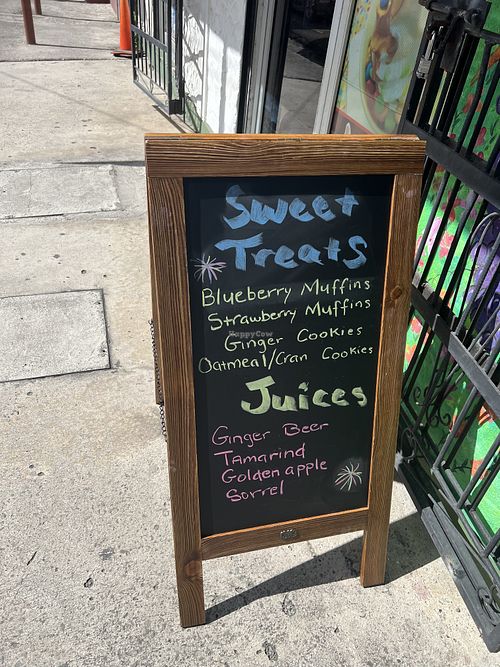 Sweet
Treats
Blueberry Muffins
Strawberry Muffins
HappyCow
Ginger Cookies
Oatmeal/Cran Cookies
Juices
Ginger Beer
Tamarind
Golden apple
Sorrel